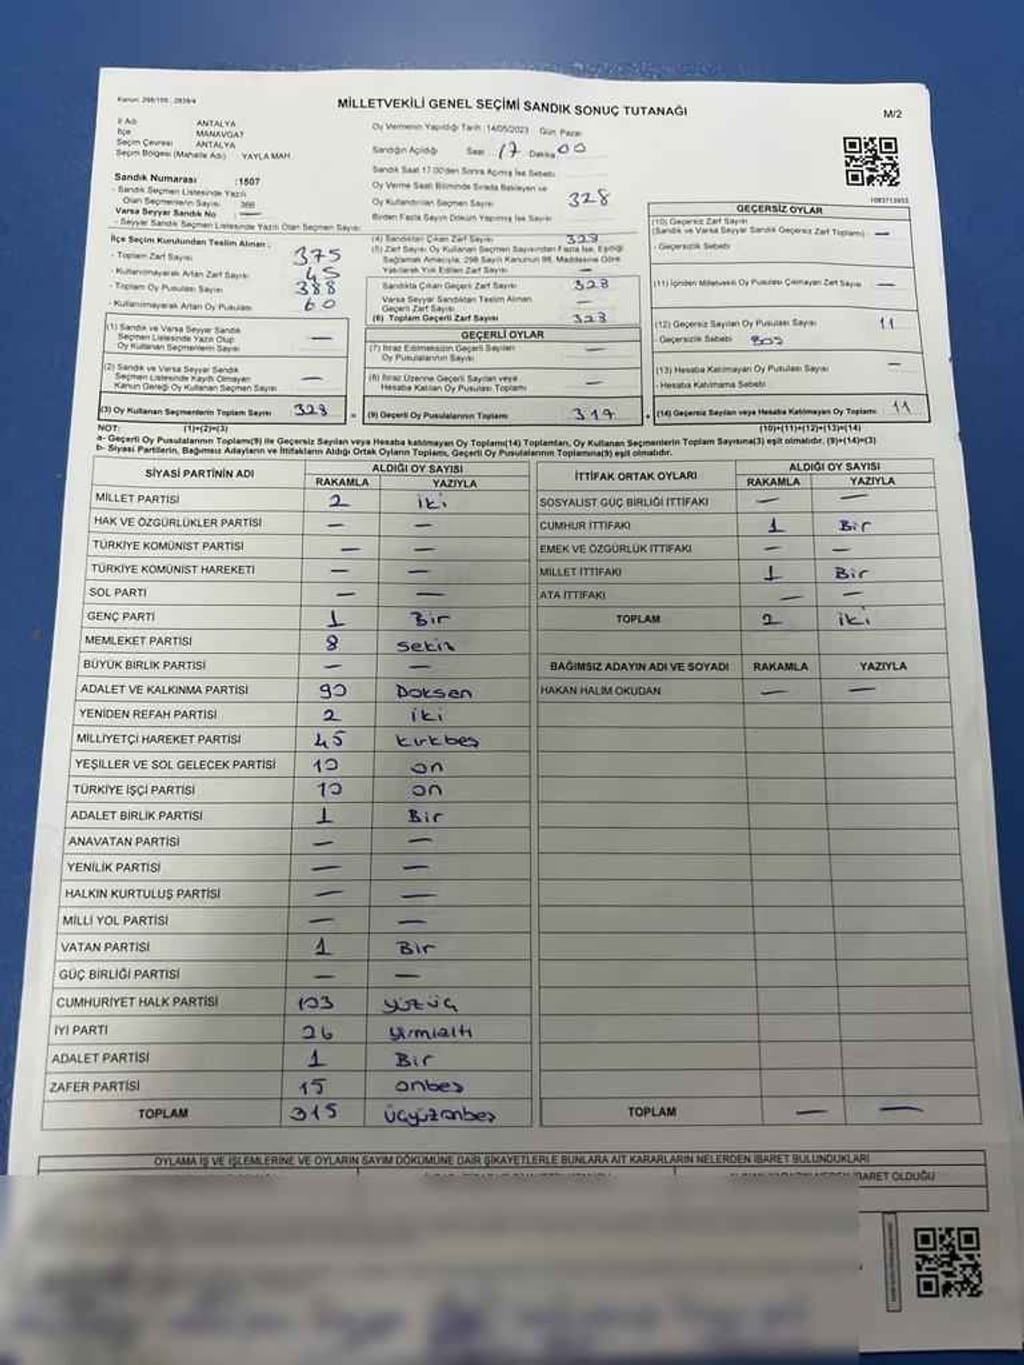 Kanun: 298/105 ; 2839/4
MİLLETVEKİLİ GENEL SEÇİMİ SANDIK SONUÇ TUTANAĞI
M/2
İl Adı ANTALYA
İlçe MANAVGAT
Seçim Çevresi ANTALYA
Seçim Bölgesi (Mahalle Adı) YAYLA MAH.
Oy Vermenin Yapıldığı Tarih :14/05/2023 Gün Pazar
Sandığın Açıldığı Saat 17 Dakika 00
Sandık Saat 17.00'den Sonra Açılmış İse Sebebi
Oy Verme Saati Bitiminde Sırada Bekleyen ve
Oy Kullandırılan Seçmen Sayısı 328
Birden Fazla Sayım Döküm Yapılmış İse Sayısı
1083713953
Sandık Numarası :1507
- Sandık Seçmen Listesinde Yazılı
Olan Seçmenlerin Sayısı 366
Varsa Seyyar Sandık No —
- Seyyar Sandık Seçmen Listesinde Yazılı Olan Seçmen Sayısı
İlçe Seçim Kurulundan Teslim Alınan ;
- Toplam Zarf Sayısı 375
- Kullanılmayarak Artan Zarf Sayısı 45
- Toplam Oy Pusulası Sayısı 388
- Kullanılmayarak Artan Oy Pusulası 60
(1) Sandık ve Varsa Seyyar Sandık
Seçmen Listesinde Yazılı Olup
Oy Kullanan Seçmenlerin Sayısı —
(2) Sandık ve Varsa Seyyar Sandık
Seçmen Listesinde Kayıtlı Olmayan
Kanun Gereği Oy Kullanan Seçmen Sayısı —
(3) Oy Kullanan Seçmenlerin Toplam Sayısı 328
(4) Sandıktan Çıkan Zarf Sayısı 328
(5) Zarf Sayısı Oy Kullanan Seçmen Sayısından Fazla İse, Eşitliği
Sağlamak Amacıyla, 298 Sayılı Kanunun 98. Maddesine Göre
Yakılarak Yok Edilen Zarf Sayısı —
Sandıkta Çıkan Geçerli Zarf Sayısı 328
Varsa Seyyar Sandıktan Teslim Alınan
Geçerli Zarf Sayısı —
(6) Toplam Geçerli Zarf Sayısı 328
GEÇERLİ OYLAR
(7) İtiraz Edilmeksizin Geçerli Sayılan
Oy Pusulalarının Sayısı —
(8) İtiraz Üzerine Geçerli Sayılan veya
Hesaba Katılan Oy Pusulası Toplamı —
= (9) Geçerli Oy Pusulalarının Toplamı 317
GEÇERSİZ OYLAR
(10) Geçersiz Zarf Sayısı
(Sandık ve Varsa Seyyar Sandık Geçersiz Zarf Toplamı) —
- Geçersizlik Sebebi
(11) İçinden Milletvekili Oy Pusulası Çıkmayan Zarf Sayısı —
(12) Geçersiz Sayılan Oy Pusulası Sayısı 11
Geçersizlik Sebebi
(13) Hesaba Katılmayan Oy Pusulası Sayısı —
- Hesaba Katılmama Sebebi
+ (14) Geçersiz Sayılan veya Hesaba Katılmayan Oy Toplamı 11
NOT: (1)+(2)=(3) (10)+(11)+(12)+(13)=(14)
a- Geçerli Oy Pusulalarının Toplamı(9) ile Geçersiz Sayılan veya Hesaba katılmayan Oy Toplamı(14) Toplamları, Oy Kullanan Seçmenlerin Toplam Sayısına(3) eşit olmalıdır. (9)+(14)=(3)
b- Siyasi Partilerin, Bağımsız Adayların ve İttifakların Aldığı Ortak Oyların Toplamı, Geçerli Oy Pusulalarının Toplamına(9) eşit olmalıdır.
SİYASİ PARTİNİN ADI ALDIĞI OY SAYISI
RAKAMLA YAZIYLA
MİLLET PARTİSİ 2 iki
HAK VE ÖZGÜRLÜKLER PARTİSİ — —
TÜRKİYE KOMÜNİST PARTİSİ — —
TÜRKİYE KOMÜNİST HAREKETİ — —
SOL PARTİ — —
GENÇ PARTİ 1 Bir
MEMLEKET PARTİSİ 8 sekiz
BÜYÜK BİRLİK PARTİSİ — —
ADALET VE KALKINMA PARTİSİ 90 Doksen
YENİDEN REFAH PARTİSİ 2 iki
MİLLİYETÇİ HAREKET PARTİSİ 45 kırkbeş
YEŞİLLER VE SOL GELECEK PARTİSİ 10 on
TÜRKİYE İŞÇİ PARTİSİ 10 on
ADALET BİRLİK PARTİSİ 1 Bir
ANAVATAN PARTİSİ — —
YENİLİK PARTİSİ — —
HALKIN KURTULUŞ PARTİSİ — —
MİLLİ YOL PARTİSİ — —
VATAN PARTİSİ 1 Bir
GÜÇ BİRLİĞİ PARTİSİ — —
CUMHURİYET HALK PARTİSİ 103 yüzüç
İYİ PARTİ 26 yirmialtı
ADALET PARTİSİ 1 Bir
ZAFER PARTİSİ 15 onbeş
TOPLAM 315 üçyüzonbeş
İTTİFAK ORTAK OYLARI ALDIĞI OY SAYISI
RAKAMLA YAZIYLA
SOSYALİST GÜÇ BİRLİĞİ İTTİFAKI — —
CUMHUR İTTİFAKI 1 Bir
EMEK VE ÖZGÜRLÜK İTTİFAKI — —
MİLLET İTTİFAKI 1 Bir
ATA İTTİFAKI — —
TOPLAM 2 iki
BAĞIMSIZ ADAYIN ADI VE SOYADI RAKAMLA YAZIYLA
HAKAN HALİM OKUDAN — —
TOPLAM — —
OYLAMA İŞ VE İŞLEMLERİNE VE OYLARIN SAYIM DÖKÜMÜNE DAİR ŞİKAYETLERLE BUNLARA AİT KARARLARIN NELERDEN İBARET BULUNDUKLARI
İBARET OLDUĞU